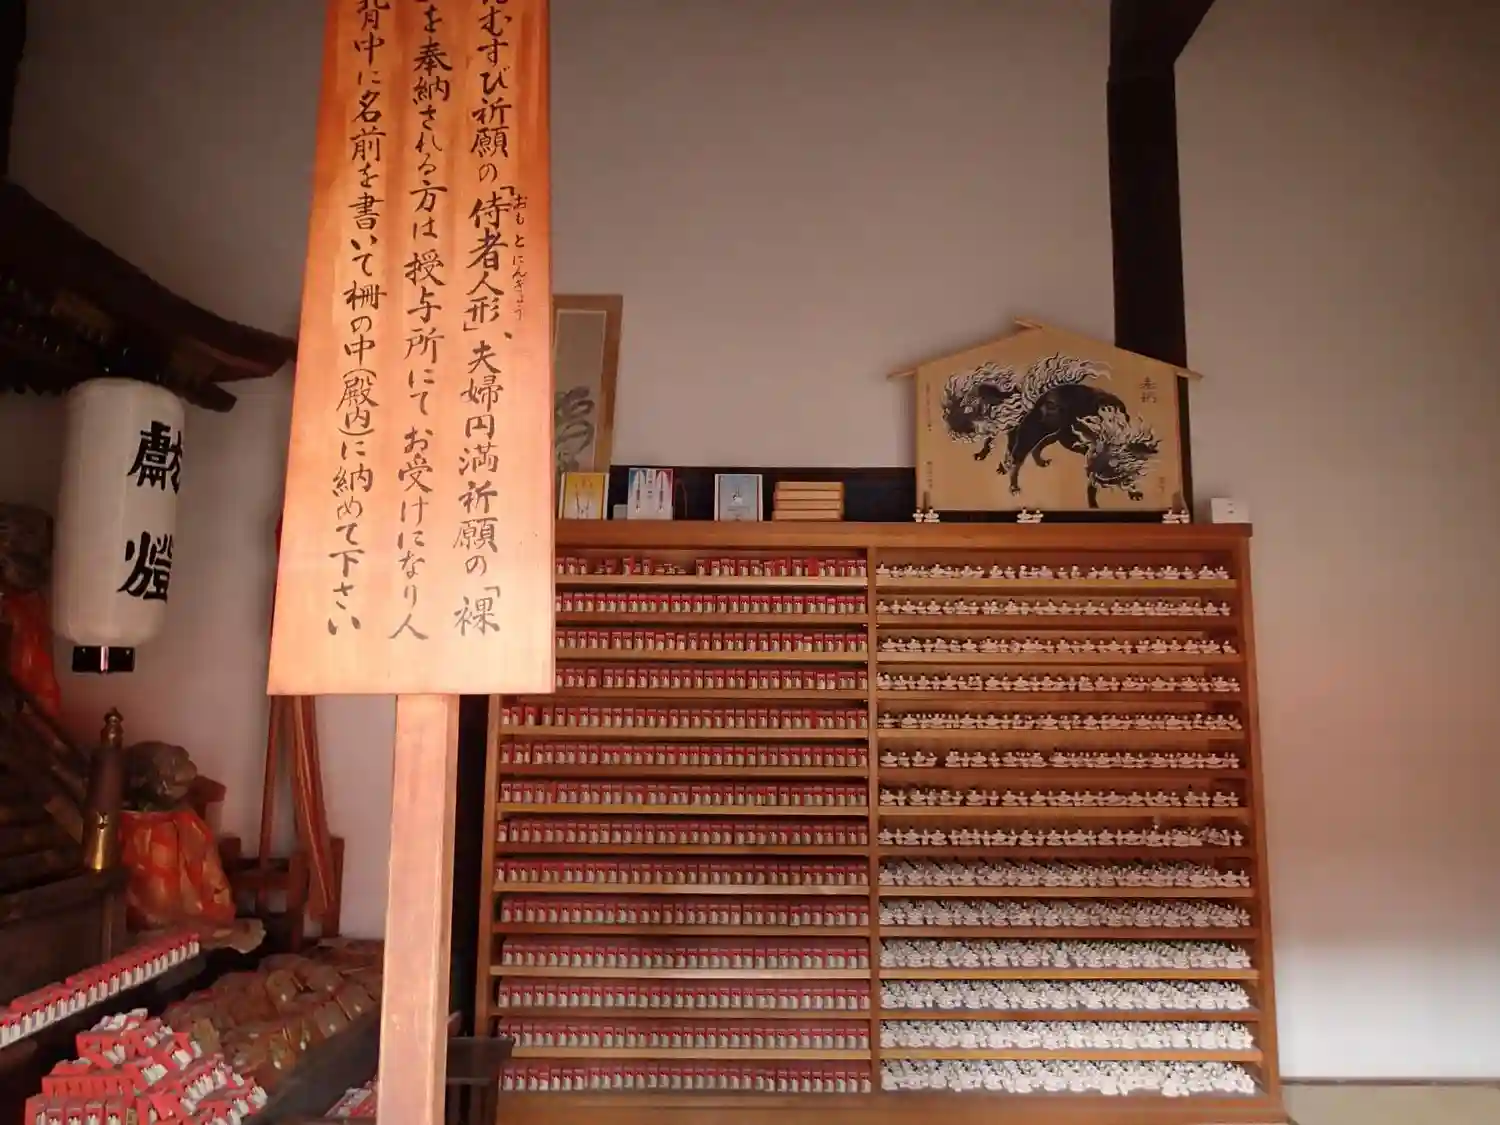 むすび祈願の「侍者人形」、夫婦円満祈願の「裸
おもとにんぎょう
を奉納される方は授与所にてお受けになり人
背中に名前を書いて柵の中(殿内)に納めて下さい
献燈
奉納